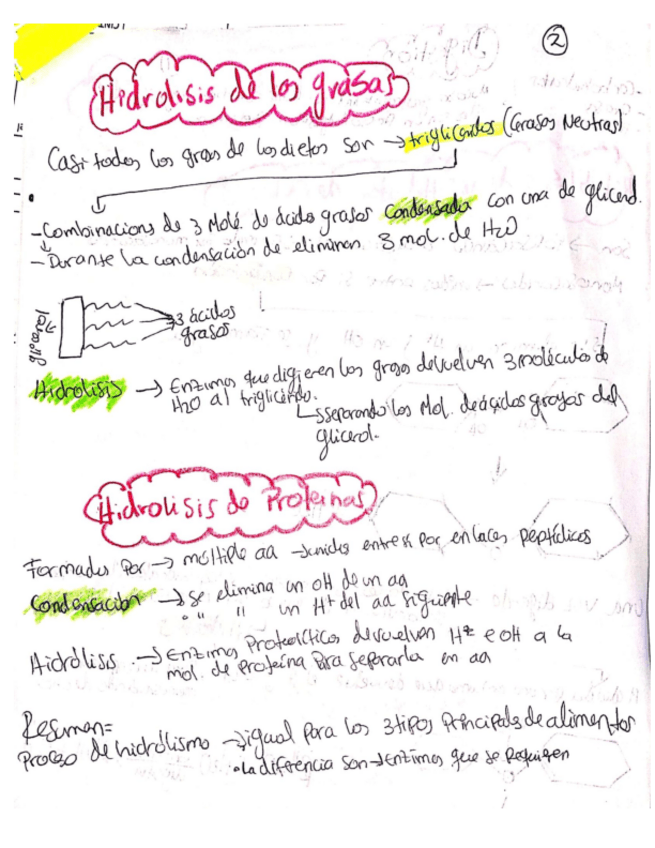 ②
Hidrolisis de los grasas
Casi todos los grasas de los dietas son → trigliceridos (Grasas Neutras)
- Combinacions de 3 Molé. de ácido grasos Condensado con una de glicerol.
- Durante la condensación de eliminan 3 mol. de H2O
glicerol
3 ácidos
grasos
Hidrolisis → Enzimas que digieren los grasa devuelven 3 moléculas de
H2O al triglicérido.
separando los Mol. de ácidos grasos del
glicerol.
Hidrolisis de Proteinas
Formados Por → múltiple aa → unidos entre si Por enlaces péptidicos
Condensación → se elimina un OH de un aa
" " un H+ del aa siguiente
Hidrólisis → Enzimas Proteolíticas devuelven H+ e OH a la
mol. de Proteína para separarla en aa
Resumen=
Proceso de hidrólismo → igual Para los 3 tipos Principals de alimentos
• La difrencia son → Enzimas que se Requieren